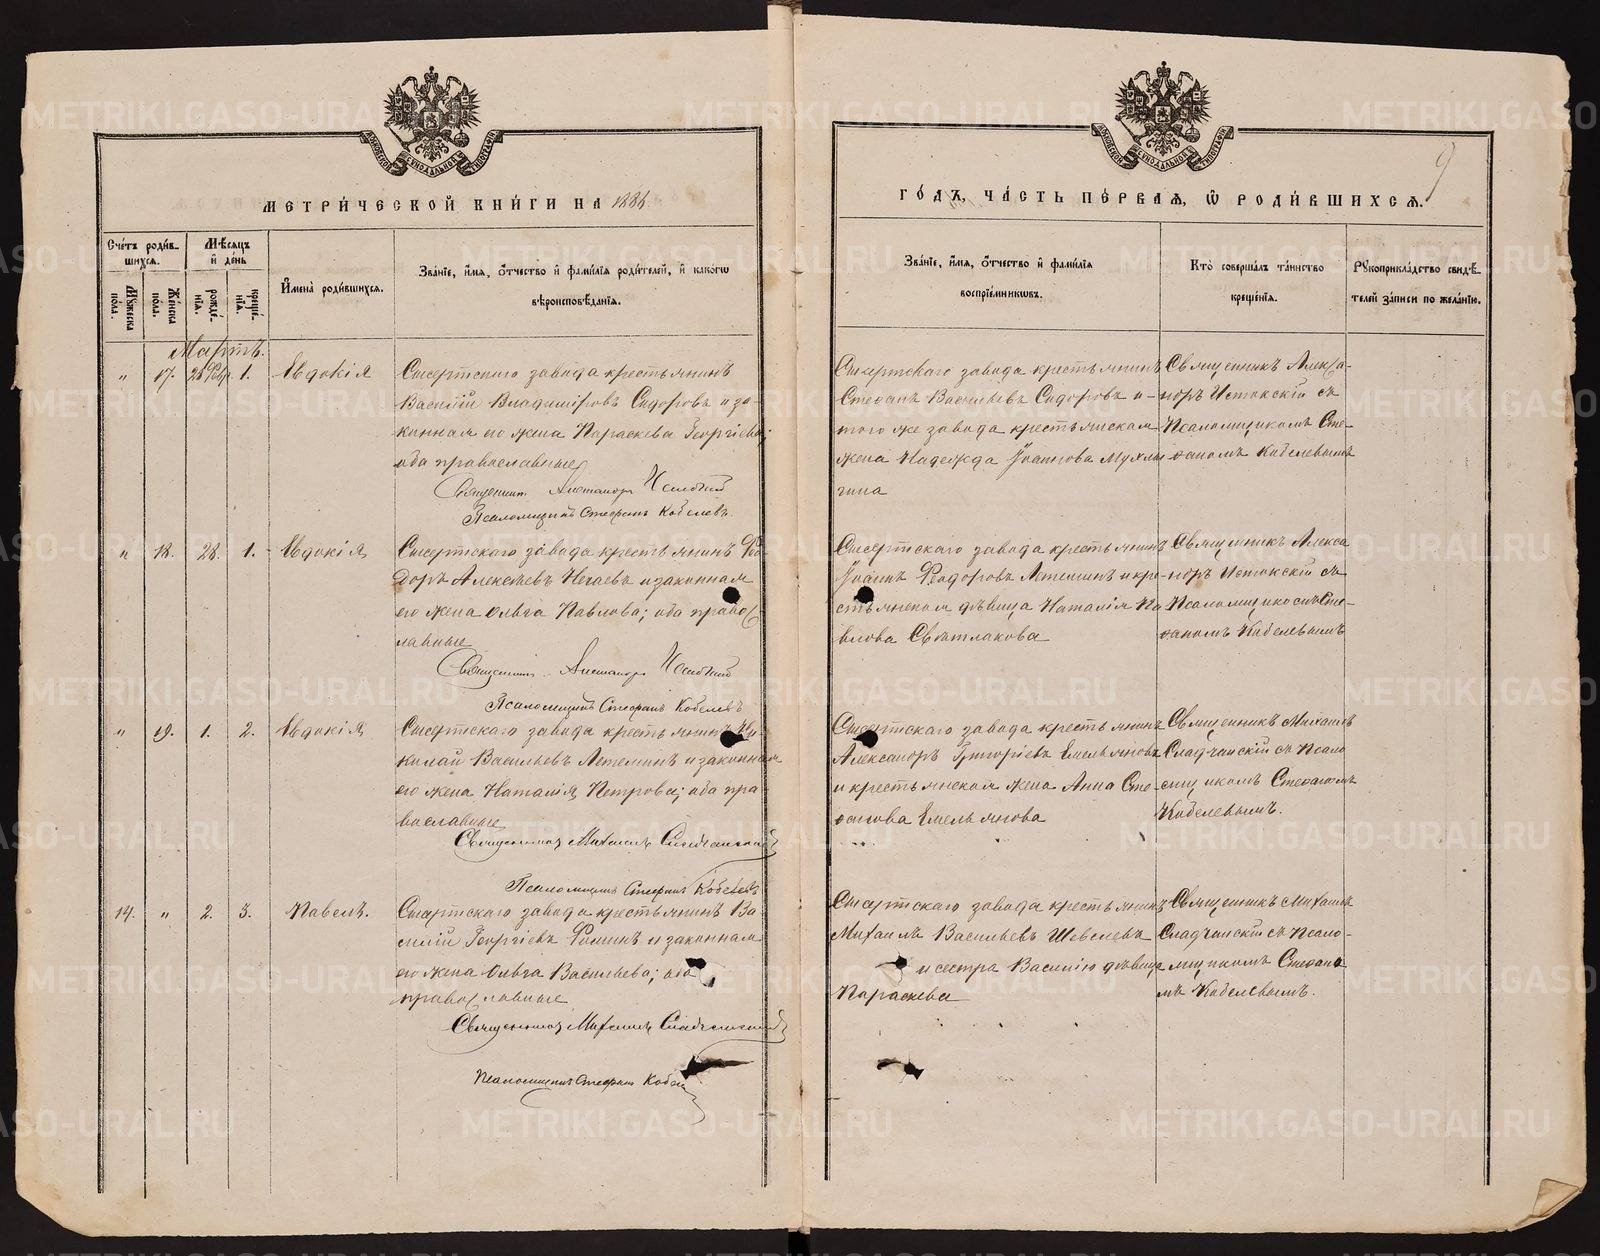 МЕТРИ́ЧЕСКОЙ КНИ́ГИ НА 1886
Сче́тъ роди́в-
шихся.
Мѣсяцъ
и҆ де́нь
Мꙋжеска
по́ла.
Же́нска
по́ла.
рожде́-
нїѧ.
креще́-
нїѧ.
И҆мена̀ роди́вшихсѧ.
Зва́нїе, и҆́мѧ, ѻ҆́тчество и҆ фами́лїѧ роди́телей, и҆ како́гѡ
вѣроисповѣ́данїѧ.
Мартъ.
" 17. 28 Февр. 1. Евдокія
Сысертскаго завода крестьянинъ
Василій Владиміровъ Сидоровъ и за-
конная его жена Параскева Георгіева;
оба православные
Священникъ Александръ Истокскій
Псаломщикъ Стефанъ Кобелевъ.
" 18. 28. 1. Евдокія
Сысертскаго завода крестьянинъ Фео
доръ Алексѣевъ Нечаевъ и законная
его жена Ольга Павлова; оба правос
лавные
Священникъ Александръ Истокскій
Псаломщикъ Стефанъ Кобелевъ
" 19. 1. 2. Евдокія
Сысертскаго завода крестьянинъ Ни-
колай Васильевъ Летеминъ и законная
его жена Наталія Петрова; оба пра-
вославные
Священникъ Михаилъ Сладчанскій
Псаломщикъ Стефанъ Кобелевъ
14. " 2. 3. Павелъ.
Сысертскаго завода крестьянинъ Ва-
силій Георгіевъ Фоминъ и законная
его жена Ольга Васильева; оба
православные
Священникъ Михаилъ Сладчанскій
Псаломщикъ Стефанъ Кобел
ГО́ДЪ, ЧА́СТЬ ПЕ́РВАѦ, Ѡ҆ РОДИ́ВШИХСѦ.
9
Зва́нїе, и҆́мѧ, ѻ҆́тчество и҆ фами́лїѧ
воспрїе́мникѡвъ.
Кто̀ соверша́лъ та́инство
креще́нїѧ.
Рꙋкоприкла́дство свидѣ́-
телей за́писи по жела́нїю.
Сысертскаго завода крестьянинъ
Стефанъ Васильевъ Сидоровъ и-
того же завода крестьянская
жена Надежда Іоаннова Мухлы
гина
Священникъ Алекса-
ндръ Истокскій съ
Псаломщикомъ Сте-
фаномъ Кобелевымъ
Сысертскаго завода крестьянинъ
Іоаннъ Феодоровъ Летеминъ и кре-
стьянская дѣвица Наталія Па
влова Свѣтлакова
Священникъ Алекса
ндръ Истокскій съ
Псаломщикомъ Сте-
фаномъ Кобелевымъ
Сысертскаго завода крестьянинъ
Александръ Григоріевъ Емельяновъ
и крестьянская жена Анна Сте-
фанова Емельянова
Священникъ Михаилъ
Сладчанскій съ Псало
мщикомъ Стефаномъ
Кобелевымъ.
Сысертскаго завода крестьянинъ
Михаилъ Васильевъ Шевелевъ
и сестра Василію дѣвица
Параскева
Священникъ Михаилъ
Сладчанскій съ Псало-
мщикомъ Стефано
мъ Кобелевымъ.
METRIKI.GASO-URAL.RU